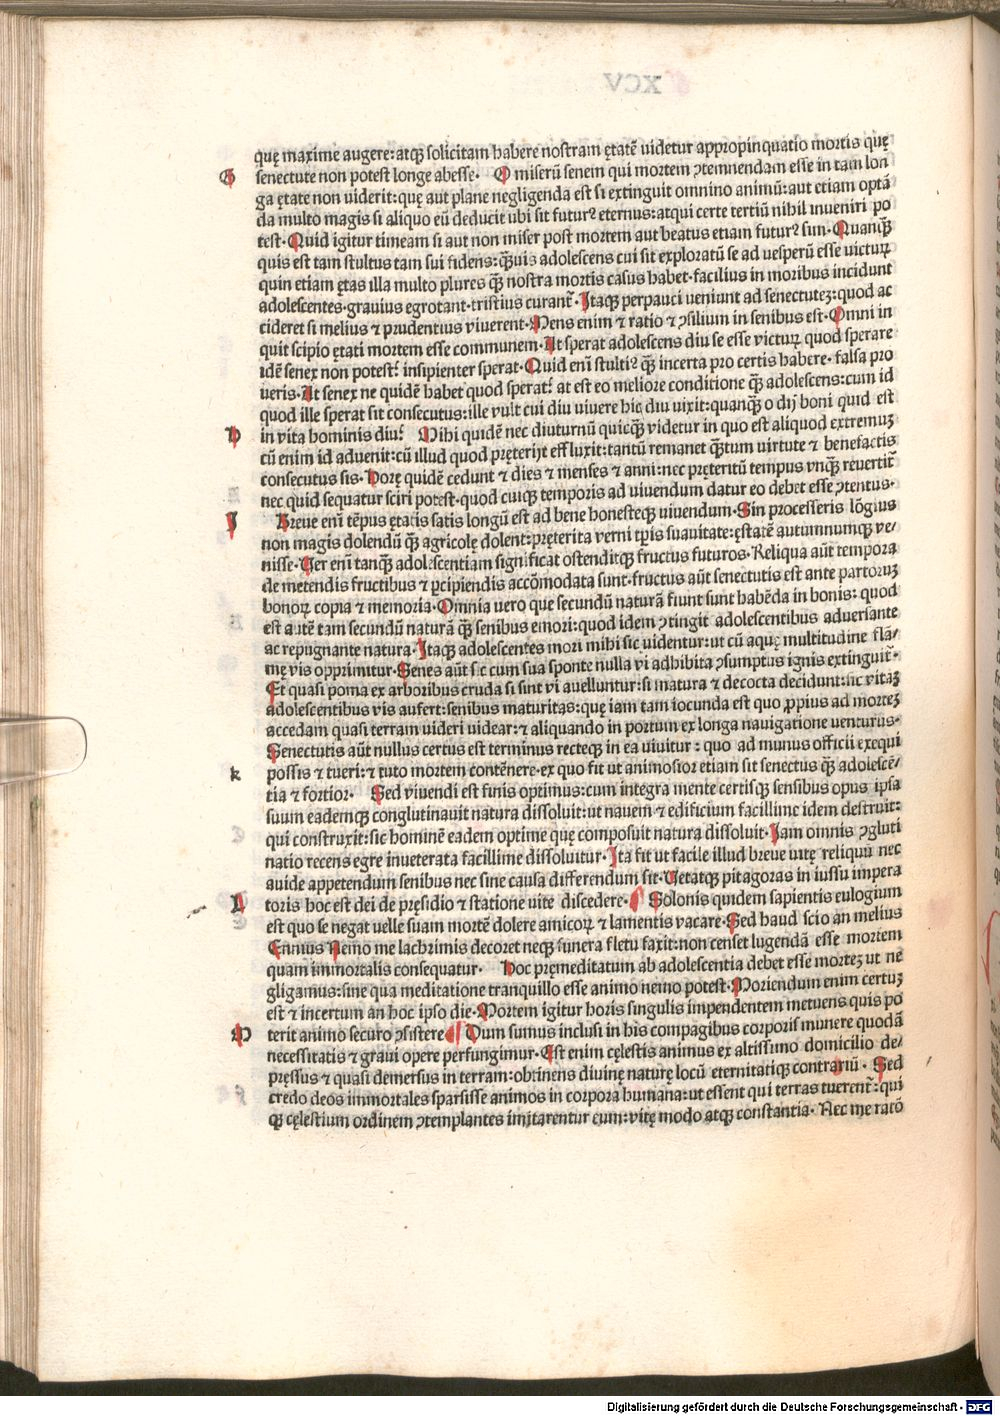 quę maxime augere:atqꝫ solicitam habere nostram ętatē videtur appropinquatio mortis quę
G senectute non potest longe abesse. O miserū senem qui mortem ꝯtemnendam esse in tam lon
ga ętate non uiderit:quę aut plane negligenda est si extinguit omnino animū:aut etiam optā
da multo magis si aliquo eū deducit ubi sit futurꝰ eternus:atqui certe tertiū nihil inueniri po
test. Quid igitur timeam si aut non miser post mortem aut beatus etiam futurꝰ sun. Quanqꝫ̄
quis est tam stultus tam sui fidens:qꝫ̄uis adolescens cui sit exploratū se ad uesperū esse victuꝝ
quin etiam ętas illa multo plures qꝫ̄ nostra mortis casus habet. facilius in moribus incidunt
adolescentes.grauius egrotant.tristius curant᷑. Itaqꝫ perpauci veniunt ad senectuteꝫ:quod ac
cideret si melius ⁊ prudentius viuerent. Mens enim ⁊ ratio ⁊ ꝯsilium in senibus est. Omni in
quit scipio ętati mortem esse communem. At sperat adolescens diu se esse victuꝝ quod sperare
idē senex non potest᷑ insipienter sperat. Quid enī stultiꝰ qꝫ̄ incerta pro certis habere. falsa pro
ueris. At senex ne quidē habet quod sperat᷑ at est eo meliore conditione qꝫ̄ adolescens:cum id
quod ille sperat sit consecutus:ille vult cui diu viuere hic diu vixit:quanqꝫ̄ o dij boni quid est
H in vita hominis diu᷑ Mihi quidē nec diuturnū quicqꝫ̄ videtur in quo est aliquod extremuꝫ
cū enim id aduenit:cū illud quod pręterijt effluxit:tantū remanet qꝫ̄tum uirtute ⁊ benefactis
consecutus sis. Horę quidē cedunt ⁊ dies ⁊ menses ⁊ anni:nec pręteritū tempus vnqꝫ̄ reuertit᷑
nec quid sequatur sciri potest.quod cuiqꝫ temporis ad viuendum datur eo debet esse ꝯtentus.
I Breue enī tēpus ętatis satis longū est ad bene honesteqꝫ uiuendum. Sin processeris lōgius
non magis dolendū qꝫ̄ agricolę dolent:pręterita verni tp̄is suauitate:ęstatē autumnumqꝫ ve/
nisse. Uer enī tanqꝫ̄ adolescentiam significat ostenditqꝫ fructus futuros. Reliqua aūt tempora
de metendis fructibus ⁊ ꝑcipiendis accōmodata sunt.fructus aūt senectutis est ante partoruꝫ
bonoꝝ copia ⁊ memoria. Omnia uero que secundū naturā fiunt sunt habēda in bonis: quod
est autē tam secundū naturā qꝫ̄ senibus emori:quod idem ꝯtingit adolescentibus aduersante
ac repugnante natura. Itaqꝫ adolescentes mori mihi sic uidentur:ut cū aquę multitudine flā/
mę vis opprimitur. Senes aūt sic cum sua sponte nulla vi adhibita ꝯsumptus ignis extinguit᷑.
Et quasi poma ex arboribus cruda si sint vi auelluntur:si matura ⁊ decocta decidunt:sic vitaꝫ
adolescentibus vis aufert:senibus maturitas:que iam tam iocunda est quo ꝓpius ad morteꝫ
accedam quasi terram uideri uidear:⁊ aliquando in portum ex longa nauigatione venturus.
Senectutis aūt nullus certus est terminus recteqꝫ in ea viuitur: quo ad munus officii exequi
k possis ⁊ tueri:⁊ tuto mortem contēnere.ex quo fit ut animosior etiam sit senectus qꝫ̄ adolescē/
tia ⁊ fortior. Sed viuendi est finis optimus:cum integra mente certisqꝫ sensibus opus ipsa
suum eademqꝫ conglutinauit natura dissoluit:ut nauem ⁊ edificium facillime idem destruit:
qui construxit:sic hominē eadem optime quę composuit natura dissoluit. Iam omnis ꝯgluti
natio recens egre inueterata facillime dissoluitur. Ita fit ut facile illud breue uitę reliquū nec
auide appetendum senibus nec sine causa differendum sit. Uetatqꝫ pitagoras in iussu impera
L toris hoc est dei de pręsidio ⁊ statione uite discedere. Solonis quidem sapientis eulogium
est quo se negat uelle suam mortē dolere amicoꝝ ⁊ lamentis vacare. Sed haud scio an melius
Ennius Nemo me lachrimis decoret neqꝫ funera fletu faxit:non censet lugendā esse mortem
quam immortalis consequatur. Hoc pręmeditatum ab adolescentia debet esse morteꝫ ut ne
gligamus:sine qua meditatione tranquillo esse animo nemo potest. Moriendum enim certuꝫ
est ⁊ incertum an hoc ipso die. Mortem igitur horis singulis impendentem metuens quis po
M terit animo securo ꝯsistere Dum sumus inclusi in his compagibus corporis munere quodā
necessitatis ⁊ graui opere perfungimur. Est enim cęlestis animus ex altissimo domicilio de/
pręssus ⁊ quasi demersus in terram:obtinens diuinę naturę locū eternitatiqꝫ contrariū. Sed
credo deos immortales sparsisse animos in corpora humana:ut essent qui terras tuerent᷑:qui
qꝫ cęlestium ordinem ꝯtemplantes imitarentur eum:vitę modo atqꝫ constantia. Nec me ratō
Digitalisierung gefördert durch die Deutsche Forschungsgemeinschaft - DFG